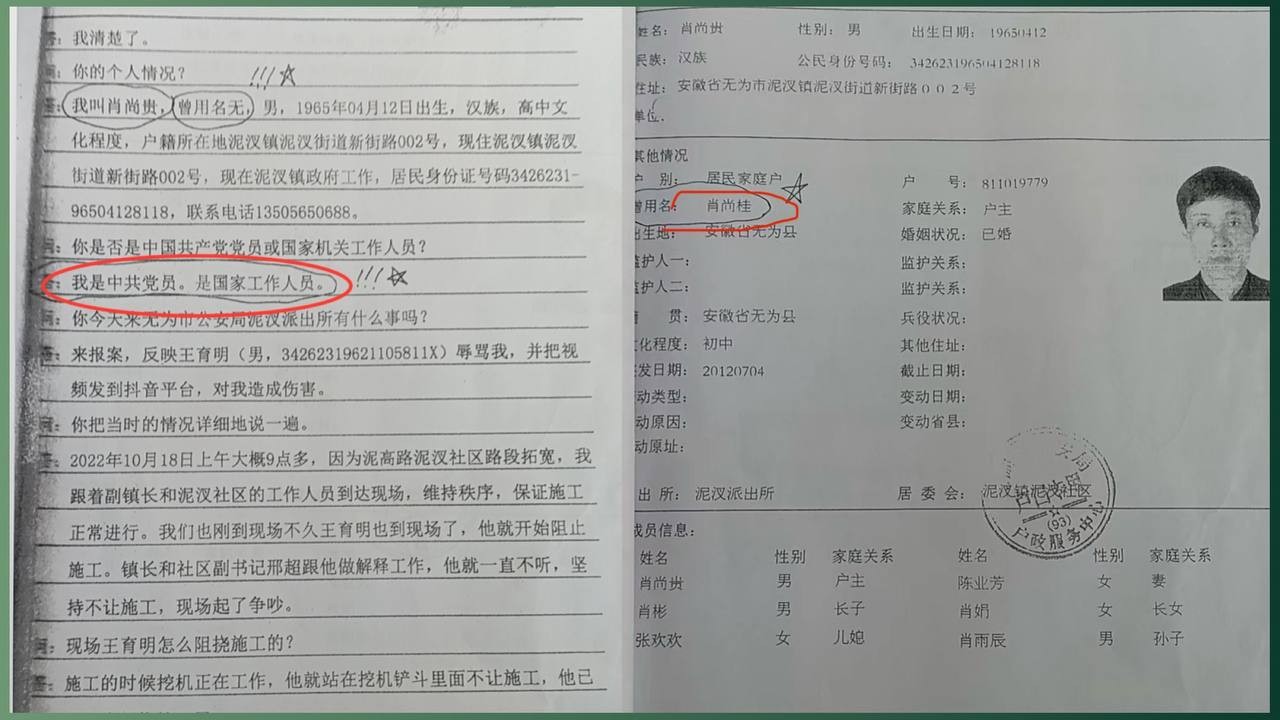 答：我清楚了。
问：你的个人情况？
!!!☆
答：我叫肖尚贵，曾用名无，男，1965年04月12日出生，汉族，高中文
化程度，户籍所在地泥汊镇泥汊街道新街路002号，现住泥汊镇泥汊
街道新街路002号，现在泥汊镇政府工作，居民身份证号码3426231-
96504128118，联系电话13505650688。
问：你是否是中国共产党党员或国家机关工作人员？
答：我是中共党员。是国家工作人员。
!!!☆
问：你今天来无为市公安局泥汊派出所有什么事吗？
答：来报案，反映王育明（男，34262319621105811X）辱骂我，并把视
频发到抖音平台，对我造成伤害。
问：你把当时的情况详细地说一遍。
答：2022年10月18日上午大概9点多，因为泥高路泥汊社区路段拓宽，我
跟着副镇长和泥汊社区的工作人员到达现场，维持秩序，保证施工
正常进行。我们也刚到现场不久王育明也到现场了，他就开始阻止
施工。镇长和社区副书记邢超跟他做解释工作，他就一直不听，坚
持不让施工，现场起了争吵。
问：现场王育明怎么阻挠施工的？
答：施工的时候挖机正在工作，他就站在挖机铲斗里面不让施工，他已
姓名：肖尚贵 性别：男 出生日期：19650412
民族：汉族 公民身份号码：342623196504128118
住址：安徽省无为市泥汊镇泥汊街道新街路００２号
单位.
其他情况
户 别：居民家庭户 户 号：811019779
曾用名：肖尚桂 家庭关系：户主
出生地：安徽省无为县 婚姻状况：已婚
监护人一： 监护关系：
监护人二： 监护关系：
籍 贯：安徽省无为县 兵役状况：
文化程度：初中 其他住址：
签发日期：20120704 截止日期：
变动类型： 变动日期：
变动原因： 变动省县：
变动原址：
派出所：泥汊派出所 居委会：泥汊镇泥汊社区
(93)
户政服务中心
成员信息：
姓名 性别 家庭关系 姓名 性别 家庭关系
肖尚贵 男 户主 陈业芳 女 妻
肖彬 男 长子 肖娟 女 长女
张欢欢 女 儿媳 肖雨辰 男 孙子